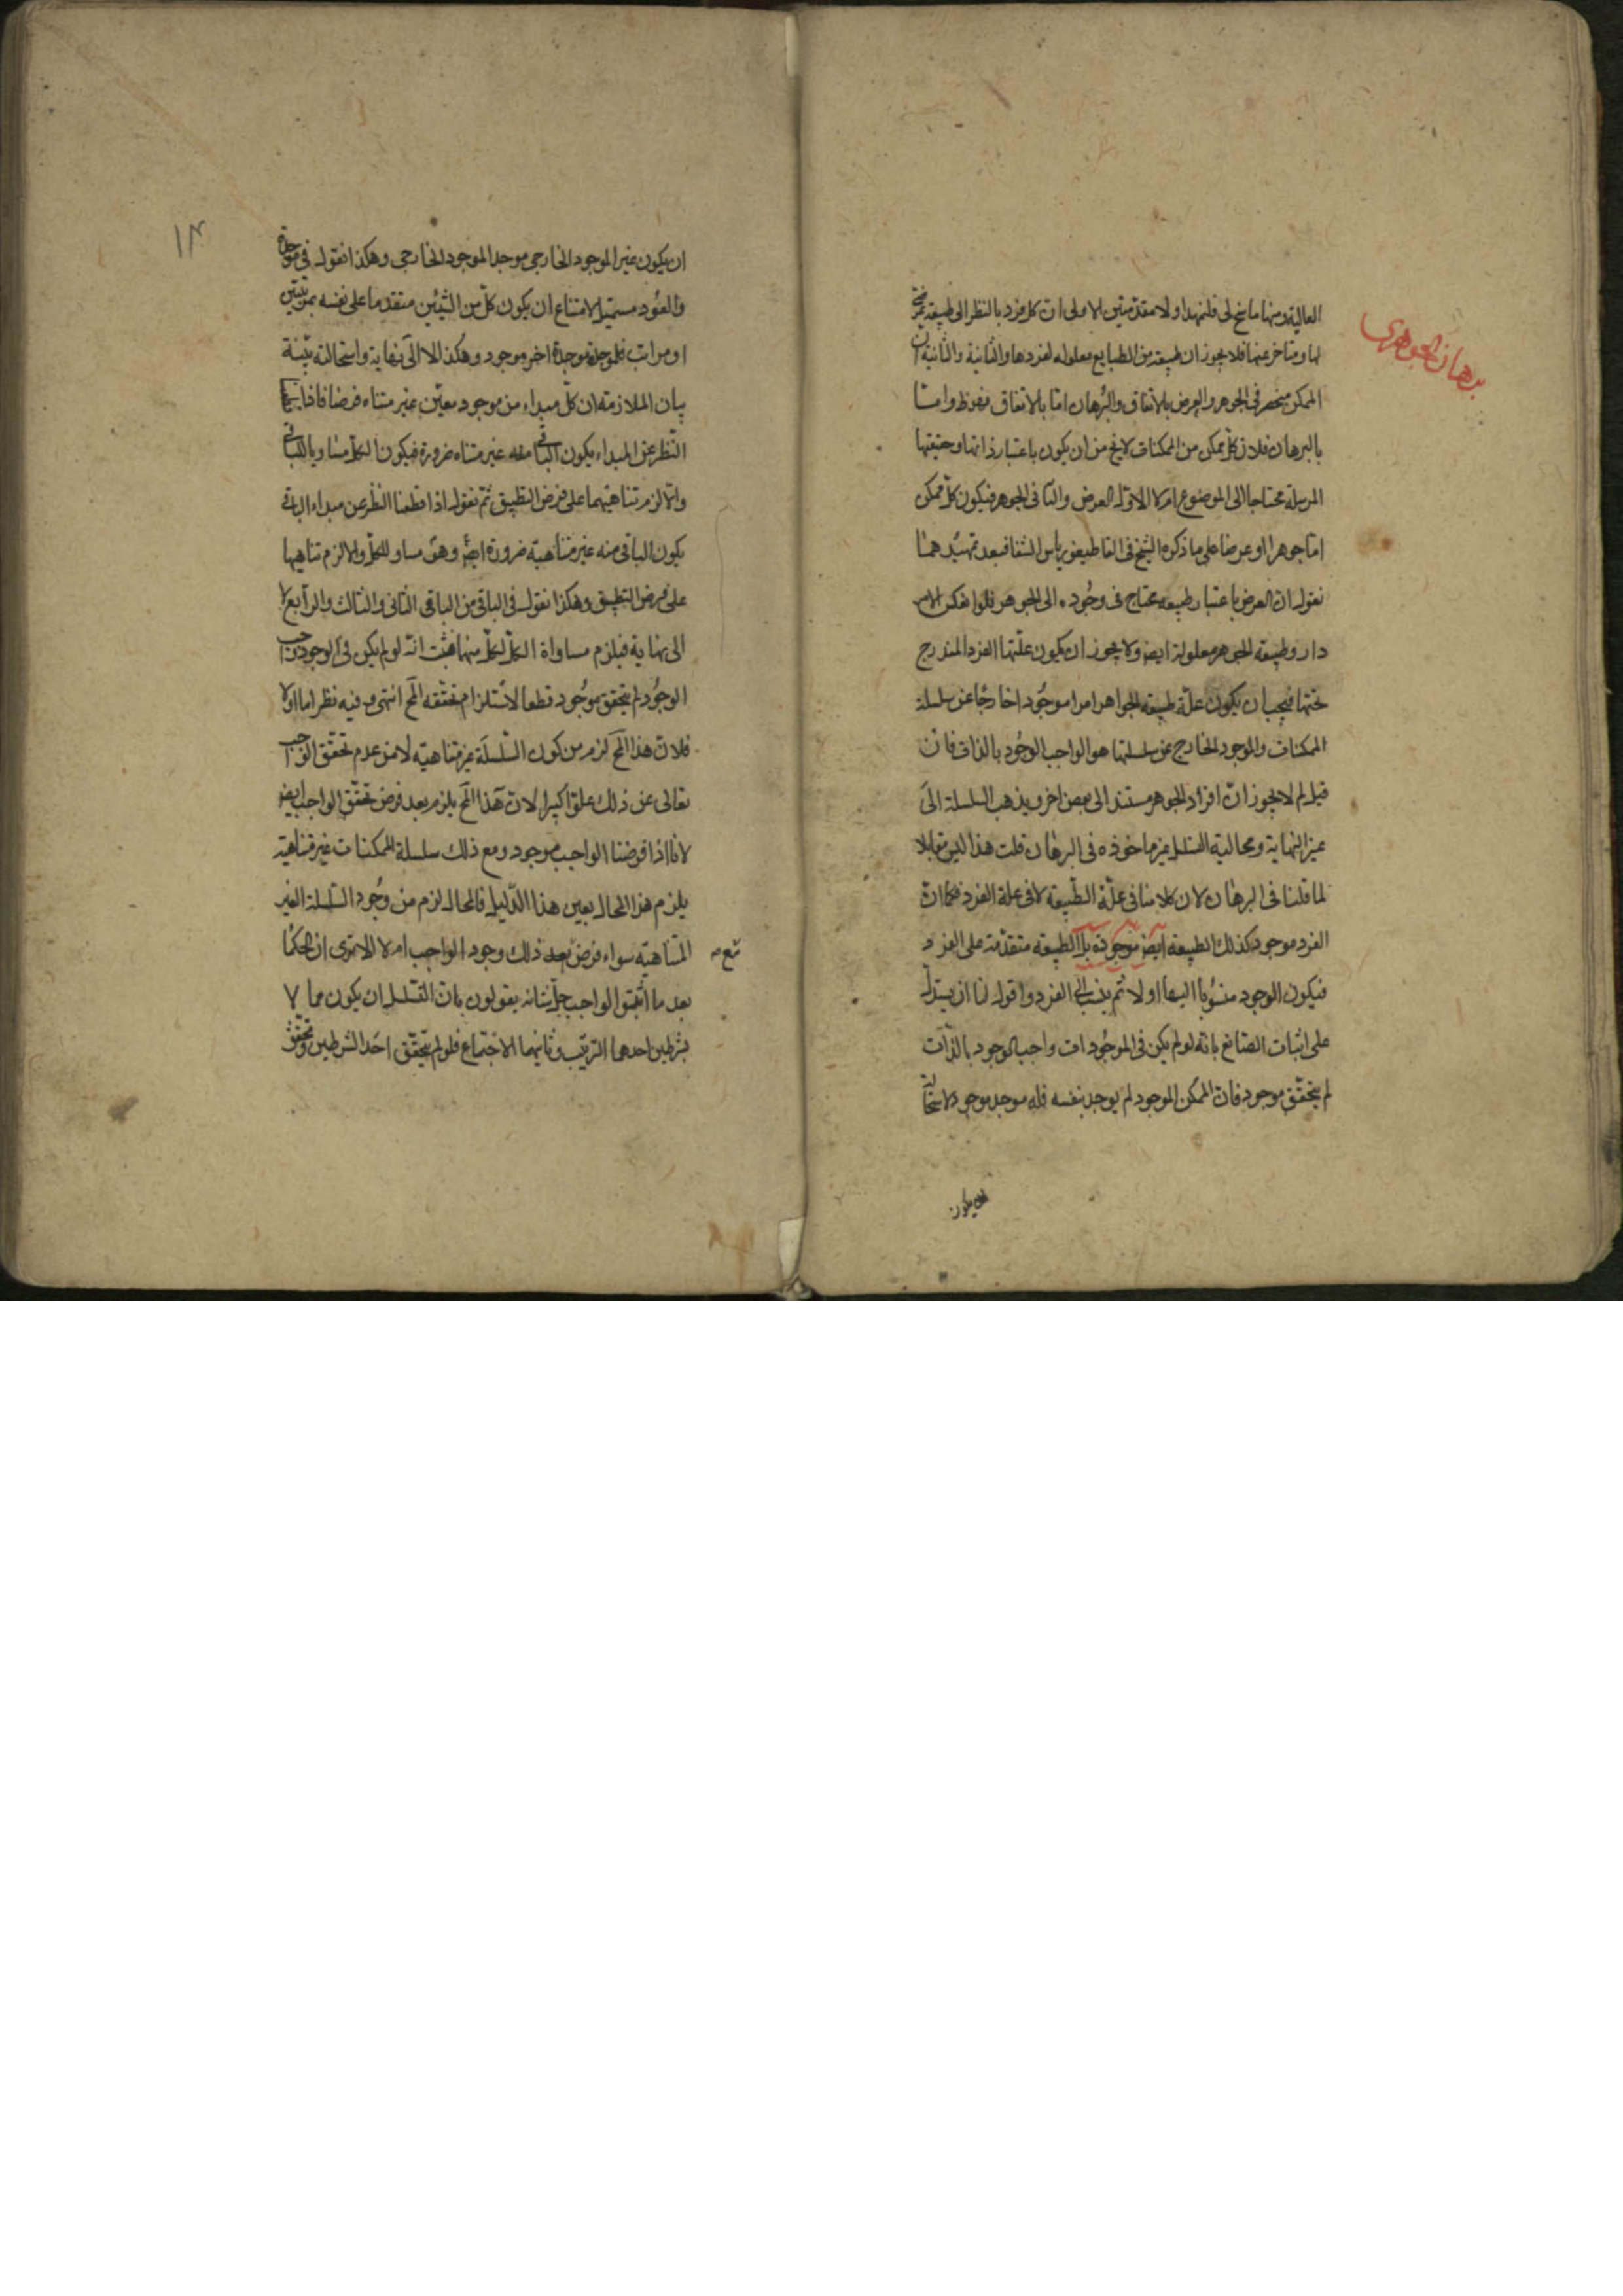 برهان الجوهرى
العالية ومنها ما سنح لى فلنمهد اولا مقدمتين الاولى ان كل فرد بالنظر الى طبيعته
لها ومتاخر عنها فلا يجوز ان طبيعة من الطبايع معلوله لفردها والثانية والثانية ان
الممكن منحصر فى الجوهر والعرض بالاتفاق والبرهان اما بالاتفاق فظ واما
بالبرهان فلان كل ممكن من الممكنات لا يخ من ان يكون باعتبار ذاتها وحقيقتها
المرسلة محتاجا الى الموضوع ام لا الاول العرض والثانى الجوهر فيكون كل ممكن
اما جوهرا او عرضا على ما ذكره الشيخ فى القاطيغورياس الشفا فبعد تمهيد هما
نقول ان العرض باعتبار طبيعته محتاج فى وجوده الى الجوهر فلو انعكس الامر
دار وطبيعة الجوهر معلولة ايضا ولا يجوز ان يكون علتها الفرد المندرج
تحتها فيجب ان يكون علة طبيعة الجواهر امرا موجودا خارجا عن سلسلة
الممكنات والموجود الخارج عن سلسلتها هو الواجب الوجود بالذات فان
قيل لم لا يجوز ان افراد الجوهر مستند الى بعض اخر ويذهب السلسلة الى
غير النهاية ومحالية التسلسل غير ماخوذه فى البرهان قلت هذا ليس مقابلا
لما قلنا فى البرهان لان كلامنا فى علة الطبيعة لا فى علة الفرد فكما ان
الفرد موجود كذلك الطبيعة ايضا موجودة بل الطبيعة متقدمة على الفرد
فيكون الوجود منسوبا اليها اولا ثم ينسب الى الفرد واقول لنا ان يستدل
على اثبات الصانع بانه لو لم يكن فى الموجودات واجب الوجود بالذات
لم يتحقق موجود فان الممكن الموجود لم يوجد بنفسه فله موجد موجود لاستحالة
ان يكون
١٣
ان يكون غير الموجود الخارجى موجد الموجود الخارجى وهكذا نقول فى موجده
والعود مستحيل لامتناع ان يكون كل من الشيئين متقدما على نفسه بمرتبتين
او مراتب فلموجده موجدة اخر موجود وهكذا لا الى نهاية واستحالته بينة
بيان الملازمة ان كل مبداء من موجود معين غير متناه فرضا فاذا
النظر عن المبداء يكون الباقى منه غير متناه ضرورة فيكون الكل مساويا للباقى
والا لزم تناهيهما على فرض التطبيق ثم نقول اذا قطعنا النظر عن مبداء الباقى
يكون الباقى منه غير متناهية ضرورة ايضا وهو مساو للكل والا لزم تناهيها
على فرض التطبيق وهكذا نقول فى الباقى من الباقى الثانى والثالث والرابع لا
الى نهاية فيلزم مساواة الكل لكل منها فثبت انه لو لم يكن فى الوجود واجب
الوجود لم يتحقق موجود قطعا لاستلزام تحققه المح انتهى وفيه نظر اما اولا
فلان هذا المح لزم من كون السلسلة غير متناهيه لا من عدم تحقق الواجب
تعالى عن ذلك علوا كبيرا لان هذا المح يلزم بعد فرض تحقق الواجب ايضا
لانا اذا فرضنا الواجب موجود ومع ذلك سلسلة الممكنات غير متناهية
يلزم هذا المحال بعين هذا الدليل فالمحال لزم من وجود السلسلة الغير
المتناهية سواء فرض بعد ذلك وجود الواجب ام لا الا ترى ان الحكما
بعد ما اثبتوا الواجب جل شانه يقولون بان التسلسل ان يكون محالا
بشرطين احدهما الترتيب وثانيهما الاجتماع فلو لم يتحقق احد الشرطين وتحقق